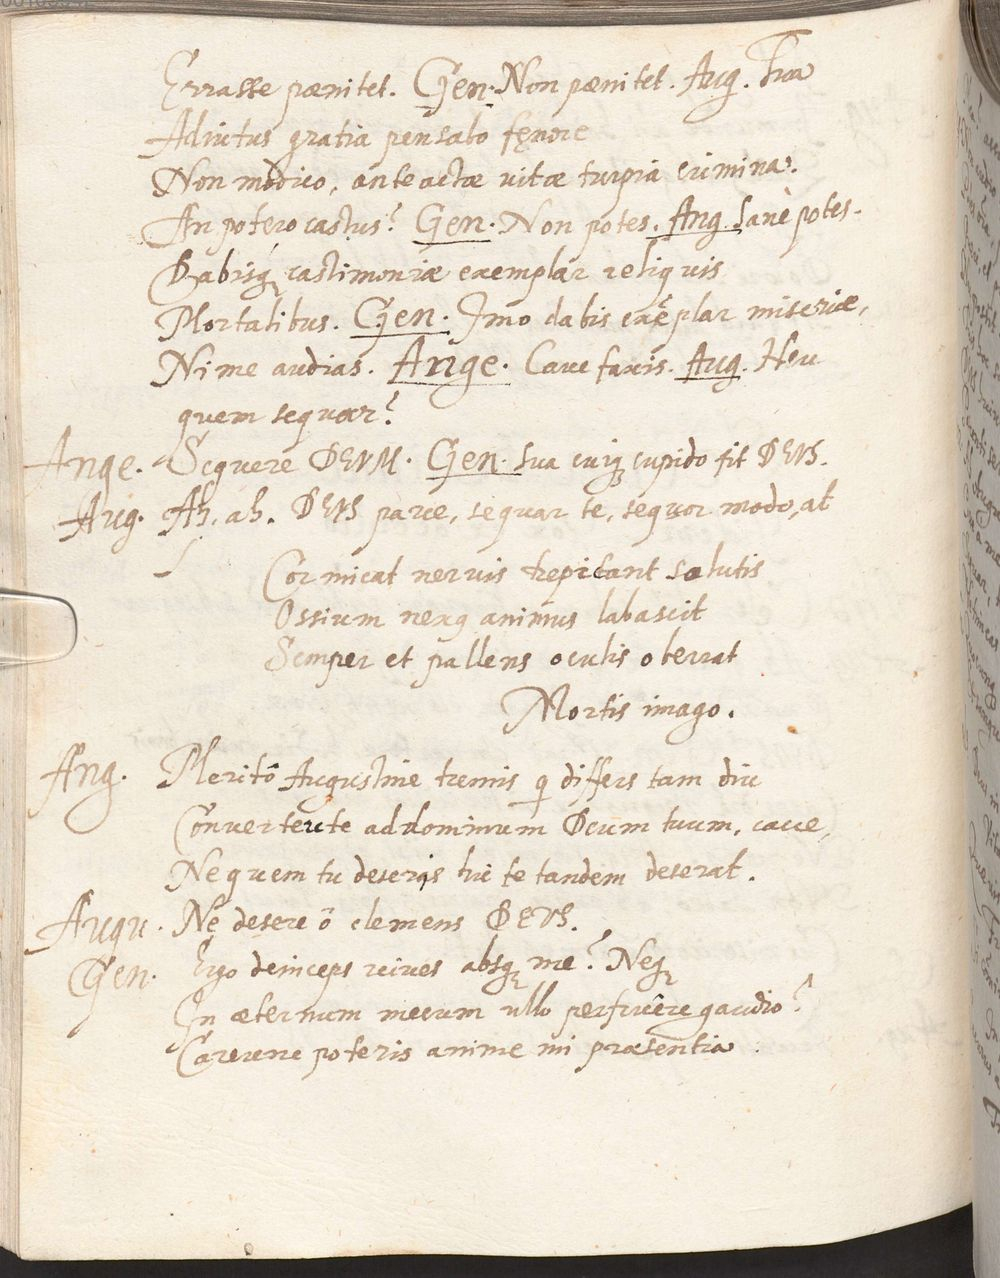 Errasse pænitet. Gen. Non pænitet. Aug. Tua
Adiutus gratia pensabo fęnore
Non modico, anteactæ vitæ turpia crimina.
An potero castus? Gen. Non potes. Ang. Sane potes.
Dabisq castimoniæ exemplar reliquis
Mortalibus. Gen. Imo dabis exẽplar miseriæ,
Ni me audias. Ange. Caue faxis. Aug. Heu
quem sequar?
Ange. Sequere DEVM. Gen. Sua cuiq cupido fit DEVS.
Aug. Ah, ah. DEVS parce, sequar te, sequor modo, at
Cor micat neruis trepidant solutis
Ossium nexq animus labascit
Semper et pallens oculis oberrat
Mortis imago.
Ang. Meritò Augustine tremis q differs tam diu
Conuertere te ad dominum Deum tuum, caue,
Ne quem tu deseris hic te tandem deserat.
Augu. Ne desere ô clemens DEVS.
Gen. Ergo deinceps viues absq me? Neq
In æternum mecum ullo perfruêre gaudio?
Carerene poteris anime mi præsentia